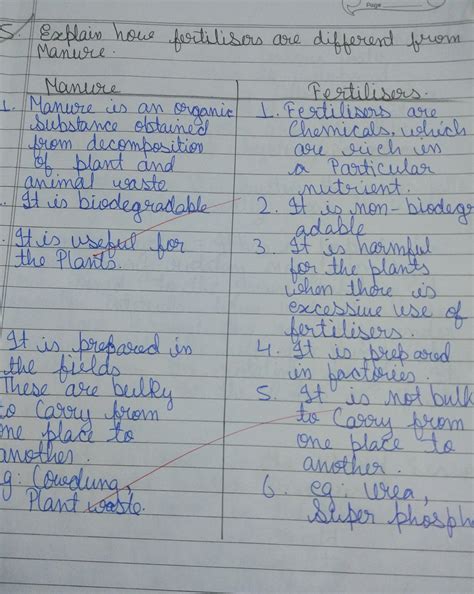 Page
5. Explain how fertilisers are different from
Manure.
Manure
Fertilisers.
1. Manure is an organic
substance obtained
from decomposition
of plant and
animal waste
. It is biodegradable
. It is useful for
the Plants.
It is prepared in
the fields
These are bulky
to Carry from
one place to
another.
g: Cowdung,
Plant waste.
1. Fertilisers are
Chemicals, which
are rich in
a Particular
nutrient.
2. It is non-biodegr
adable
3. It is harmful
for the plants
when there is
excessive use of
fertilisers.
4. It is prepared
in factories.
5. It is not bulk
to Carry from
one place to
another.
6. eg: Urea,
Super phosph